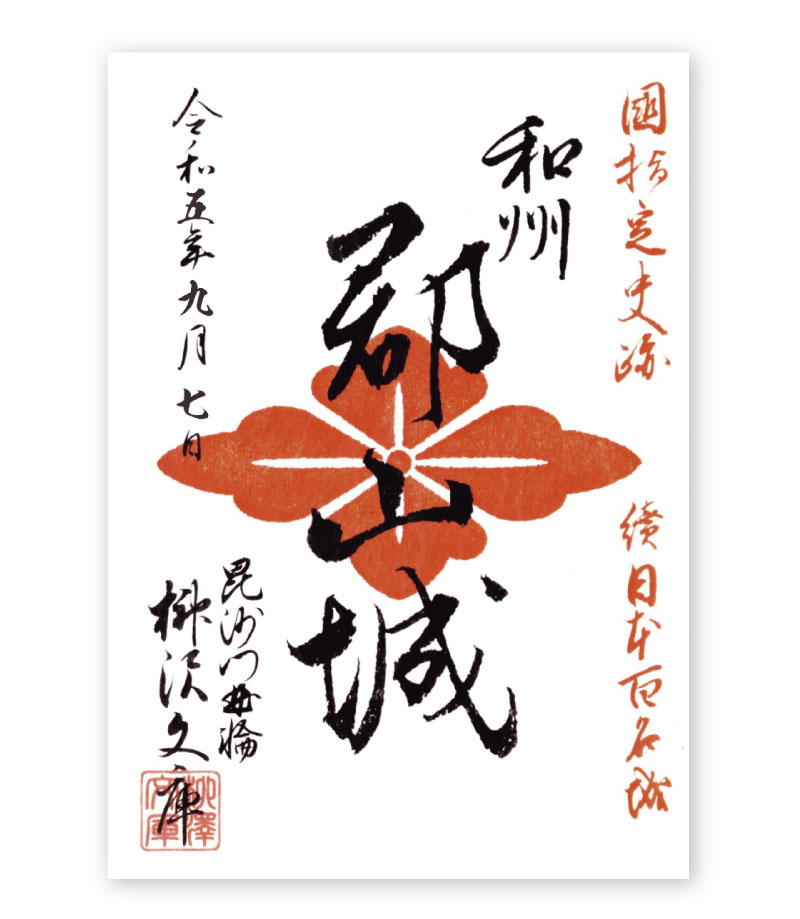 國指定史跡
續日本百名城
和州
郡山城
令和五年九月七日
毘沙門曲輪
柳沢文庫
柳澤文庫